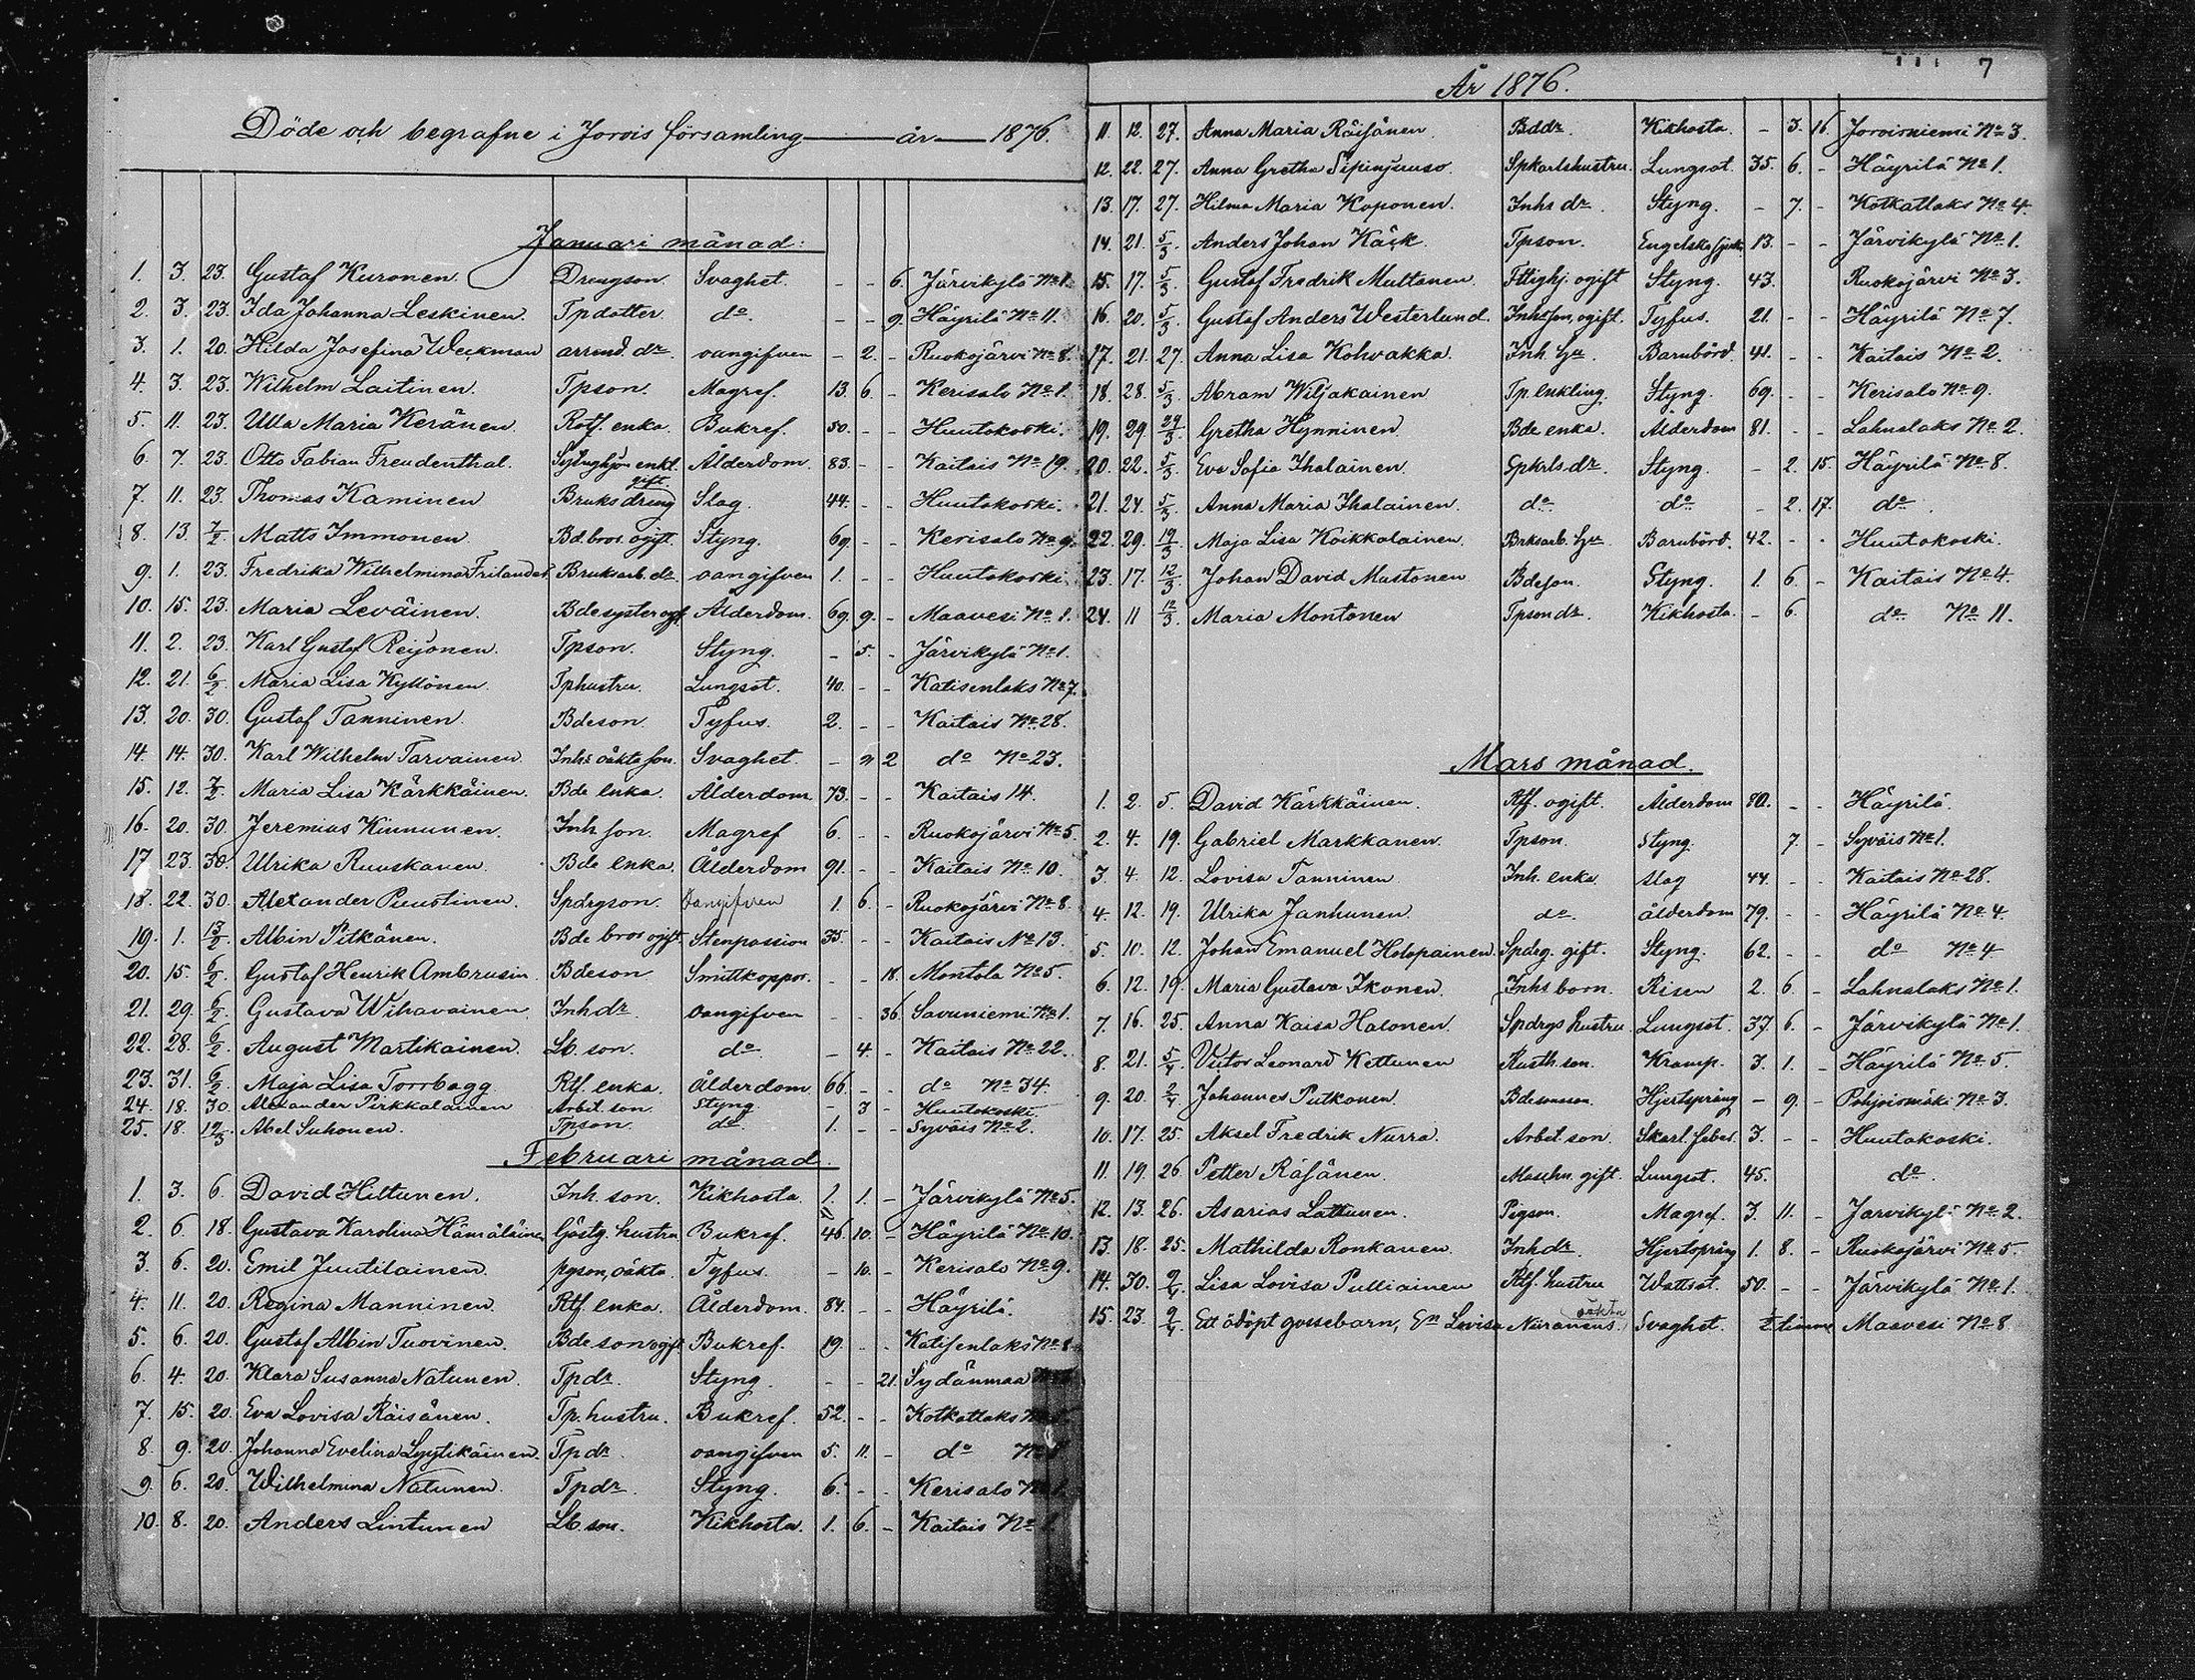 Döde och begrafne i Jorois församling år 1876.
Januari månad:
1. 3. 23. Gustaf Kuronen. Drengson. Svaghet. - - 6. Järvikylä No 1.
2. 3. 23. Ida Johanna Leskinen. Tpdotter do. - - 9. Häyrilä No 11.
3. 1. 20. Hilda Josefina Weckman arrend. dr oangifven - 2. - Ruokojärvi No 8.
4. 3. 23. Wilhelm Laitinen. Tpson. Magref. 13. 6. - Kerisalo No 1.
5. 11. 23. Ulla Maria Keränen. Rotf. enka. Bukref. 50. - - Huutokoski.
6. 7. 23. Otto Fabian Freudenthal. enkl. Ålderdom. 83. - - Kaitais No 19.
7. 11. 23. Thomas Kaminen Bruksdreng gift. Slag. 44. - - Huutokoski.
8. 13. 7/2. Matts Immonen. Bd. bror. ogift. Styng. 69. - - Kerisalo No 9.
9. 1. 23. Fredrika Wilhelmina Frilander Bruksarb. dr oangifven 1. - - Huutokoski
10. 15. 23. Maria Leväinen. Bde syster ogift. Ålderdom. 69. 9. - Maavesi No 1.
11. 2. 23. Karl Gustaf Reijonen. Tpson. Styng. - 5. - Järvikylä No 1.
12. 21. 6/2. Maria Lisa Kyllönen. Tphustru. Lungsot. 40. - - Katisenlaks No 7.
13. 20. 30. Gustaf Tanninen. Bdeson. Tyfus. 2. - - Kaitais No 28.
14. 14. 30. Karl Wilhelm Tarvainen. Inhs oäkta son. Svaghet. - 2 2 do No 23.
15. 12. 7/2. Maria Lisa Kärkkäinen. Bde enka. Ålderdom. 73. - - Kaitais 14.
16. 20. 30. Jeremias Kinnunen. Inh son. Magref 6. - - Ruokojärvi No 5.
17 23. 30. Ulrika Ruuskanen. Bde enka. Ålderdom 91. - - Kaitais No 10.
18. 22. 30. Alexander Puustinen. Spdrgson. Oangifven 1. 6. - Ruokojärvi No 8.
19. 1. 13/2. Albin Pitkänen. Bde bror ogift. Stenpassion 35. - - Kaitais No 13.
20. 15. 6/2. Gustaf Henrik Ambrusin. Bdeson. Smittkoppor. - - 18. Montola No 5.
21. 29. 6/2. Gustava Wihavainen. Inhdr. oangifven - - 36. Savuniemi No 1.
22. 28. 6/2. August Martikainen. Lb. son. do. - 4. - Kaitais No 22.
23. 31. 6/2. Maja Lisa Torrbagg. Rtf. enka. Ålderdom. 66. - - do No 34.
24. 18. 30. Alexander Pirkkalainen Arbet. son. Styng. - 3 - Huutokoski.
25. 18. 12/3. Abel Suhonen. Tpson. do. 1. - - Syväis No 2.
Februari månad.
1. 3. 6. David Hiltunen. Inh. son. Kikhosta. 1. 1. - Järvikylä No 5.
2. 6. 18. Gustava Karolina Hämäläinen Gästg. hustru Bukref. 46. 10. - Häyrilä No 10.
3. 6. 20. Emil Juutilainen. pgson, oäkta. Tyfus. - 10. - Kerisalo No 9.
4. 11. 20. Regina Manninen. Rtf. enka. Ålderdom. 84. - - Häyrilä.
5. 6. 20. Gustaf Albin Tuovinen. Bde son ogift Bukref. 19. - - Katisenlaks No 8
6. 4. 20. Klara Susanna Natunen. Tpdr. Styng. - - 21. Sydänmaa
7. 15. 20. Eva Lovisa Räisänen. Tp. hustru. Bukref. 52. - - Kotkatlaks No
8. 9. 20. Johanna Evelina Lyytikäinen. Tpdr. oangifven 5. 11. - do No
9. 6. 20. Wilhelmina Natunen. Tpdr. Styng. 6. - - Kerisalo No 1.
10. 8. 20. Anders Lintunen Lb. son. Kikhosta. 1. 6. - Kaitais No 1.
År 1876.
7
11. 12. 27. Anna Maria Räisänen. Bddr. Kikhosta. - 3. 16. Joroisniemi No 3.
12. 22. 27. Anna Gretha Sipinjuuso. Spkarlshustru. Lungsot. 35. 6. - Häyrilä No 1.
13. 17. 27. Hilma Maria Koponen. Inhs dr. Styng. - 7. - Kotkatlaks No 4.
14. 21. 5/3. Anders Johan Käck. Tpson. Engelska sjukan 13. - - Järvikylä No 1.
15. 17. 5/3. Gustaf Fredrik Multanen. Fttighj. ogift Styng. 43. Ruokojärvi No 3.
16. 20. 5/3. Gustaf Anders Westerlund. Inhs son, ogift. Tyfus. 21. - - Häyrilä No 7.
17. 21. 27. Anna Lisa Kohvakka. Inh. hu. Barnbörd. 41. - - Kaitais No 2.
18. 28. 5/3. Abram Wiljakainen Tp. enkling. Styng. 69. - - Kerisalo No 9.
19. 29. 24/3. Gretha Hynninen. Bde enka. Ålderdom 81. - - Lahnalaks No 2.
20. 22. 5/3. Eva Sofia Ihalainen. Spkrls. dr. Styng. - 2. 15. Häyrilä No 8.
21. 24. 5/3. Anna Maria Ihalainen. do. do. - 2. 17. do.
22. 29. 19/3. Maja Lisa Koikkalainen. Brksarb. hu Barnbörd. 42. - - Huutokoski.
23. 17. 12/3. Johan David Mustonen Bdeson. Styng. 1. 6. - Kaitais No 4.
24. 11 12/3. Maria Montonen Tpson dr. Kikhosta. - 6. do No 11.
Mars månad.
1. 2. 5. David Kärkkäinen. Rtf. ogift. Ålderdom 80. - - Häyrilä.
2. 4. 19. Gabriel Markkanen. Tpson. Styng. 7. - Syväis No 1.
3. 4. 12. Lovisa Tanninen. Inh. enka. slag 44. - - Kaitais No 28.
4. 12. 19. Ulrika Janhunen. do. ålderdom 79. - - Häyrilä No 4.
5. 10. 12. Johan Emanuel Holopainen. Spdrg. gift. Styng. 62. - - do No 4
6. 12. 19. Maria Gustava Ikonen. Inhs barn. Risen 2. 6. - Lahnalaks No 1.
7. 16. 25. Anna Kaisa Halonen. Spdrgs hustru Lungsot. 37. 6. - Järvikylä No 1.
8. 21. 5/4. Victor Leonard Kettunen Rusth. son. Kramp. 3. 1. - Häyrilä No 5.
9. 20. 2/4. Johannes Putkonen. Bdesonson. Hjertsprång - 9. - Pohjoismäki No 3.
10. 17. 25. Aksel Fredrik Nurra. Arbet. son. Skarl. feber. 3. - - Huutokoski.
11. 19. 26 Petter Räsänen. Maschn. gift. Lungsot. 45. do.
12. 13. 26. Asarias Lattunen. Pigson. Magref. 3. 11. - Järvikylä No 2.
13. 18. 25. Mathilda Ronkanen. Inhdr. Hjertsprång 1. 8. - Ruokojärvi No 5.
14. 30. 9/4. Lisa Lovisa Pulliainen Rtf. hustru Wattsot. 50. - - Järvikylä No 1.
15. 23. 9/4. Ett ödöpt gossebarn, En Lovisa Nuranens. oäkta Svaghet. ½ timme Maavesi No 8.